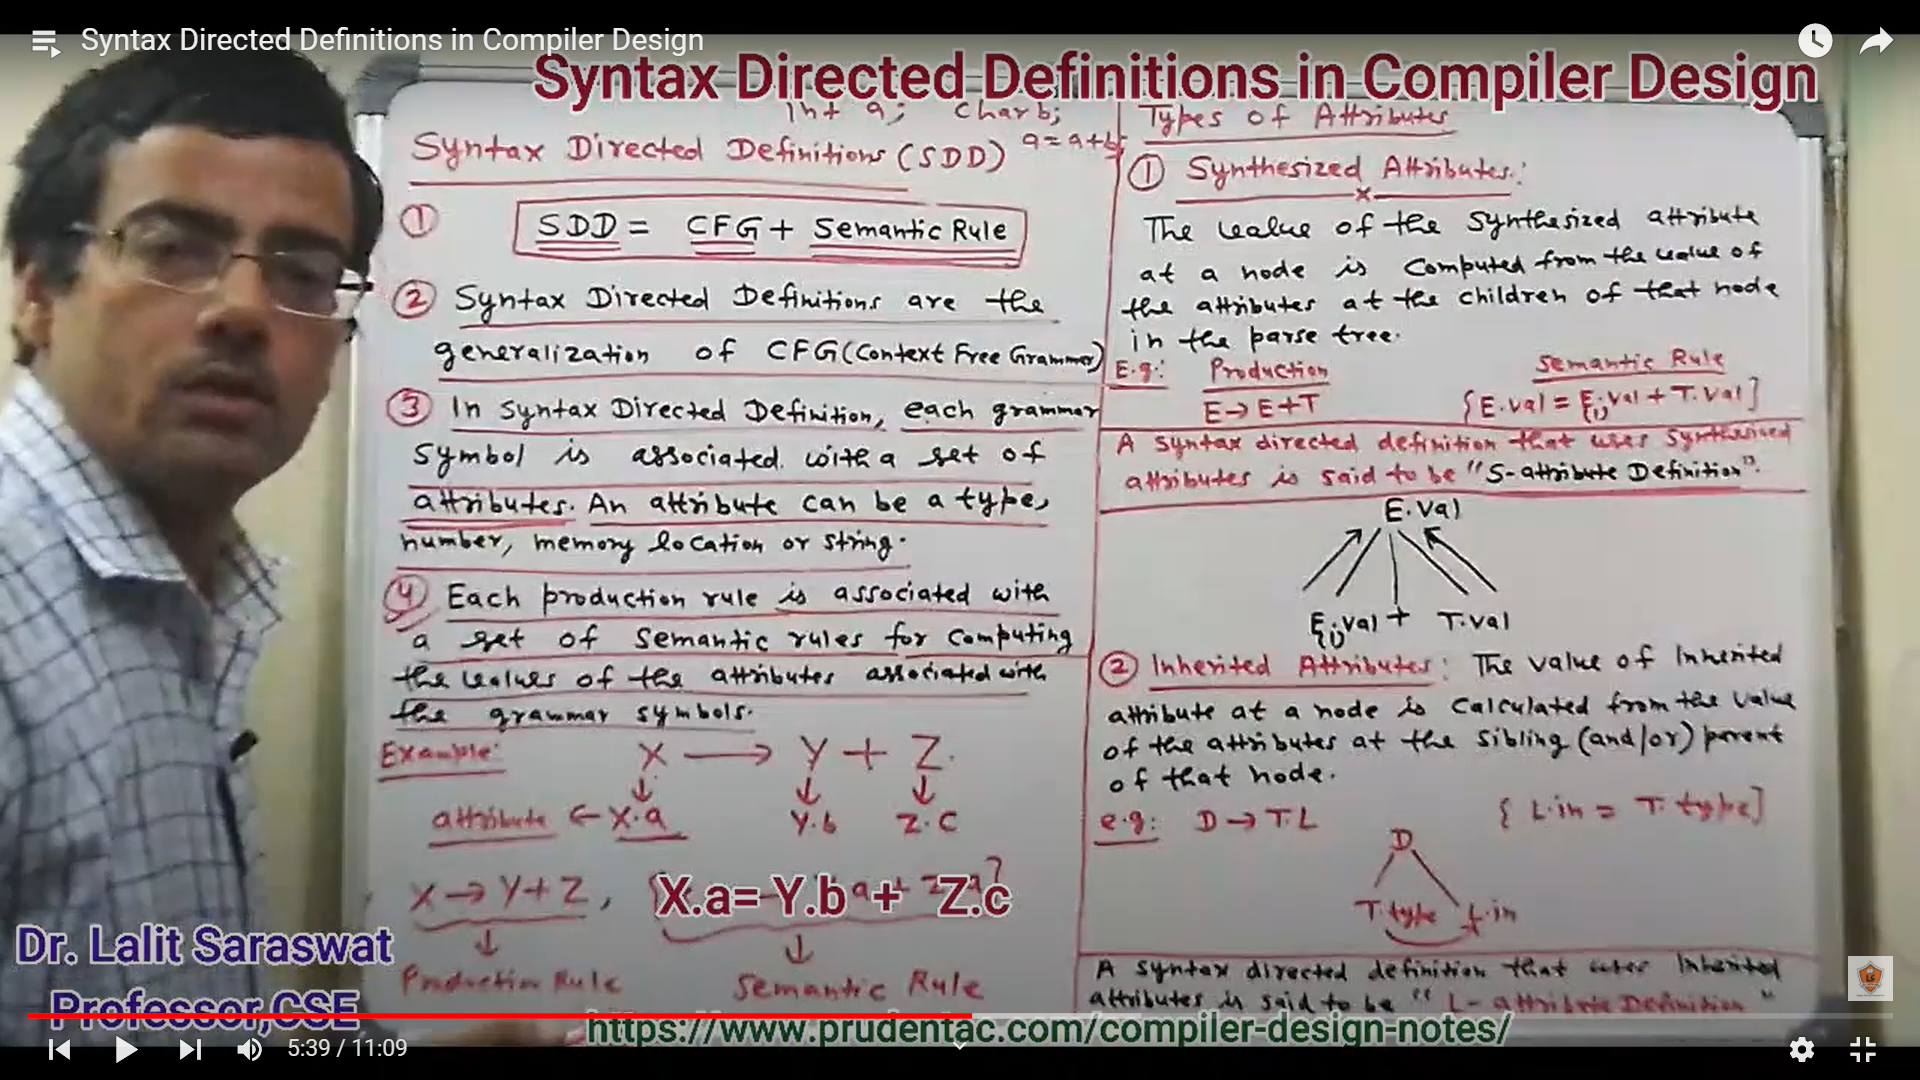 Syntax Directed Definitions in Compiler Design
Syntax Directed Definitions in Compiler Design
int a; char b;
a = a + b;
Syntax Directed Definitions (SDD)
① SDD = CFG + Semantic Rule
② Syntax Directed Definitions are the
generalization of CFG (Context Free Grammar)
③ In Syntax Directed Definition, each grammar
symbol is associated with a set of
attributes. An attribute can be a type,
number, memory location or string.
④ Each production rule is associated with
a set of semantic rules for computing
the values of the attributes associated with
the grammar symbols.
Example: X → Y + Z
attribute ← X.a Y.b Z.c
X → Y + Z, X.a = Y.b + Z.c
Production Rule Semantic Rule
Types of Attributes
① Synthesized Attributes:
The value of the Synthesized attribute
at a node is computed from the value of
the attributes at the children of that node
in the parse tree.
E.g: Production Semantic Rule
E → E + T {E.val = E(1).val + T.val}
A syntax directed definition that uses synthesized
attributes is said to be "S-attribute Definition".
E.val
E(1).val + T.val
② Inherited Attributes: The value of Inherited
attribute at a node is calculated from the value
of the attributes at the sibling (and/or) parent
of that node.
e.g: D → T L { L.in = T.type}
D
T.type L.in
A syntax directed definition that uses Inherited
attributes is said to be "L-attribute Definition"
Dr. Lalit Saraswat
Professor,CSE
https://www.prudentac.com/compiler-design-notes/
5:39 / 11:09